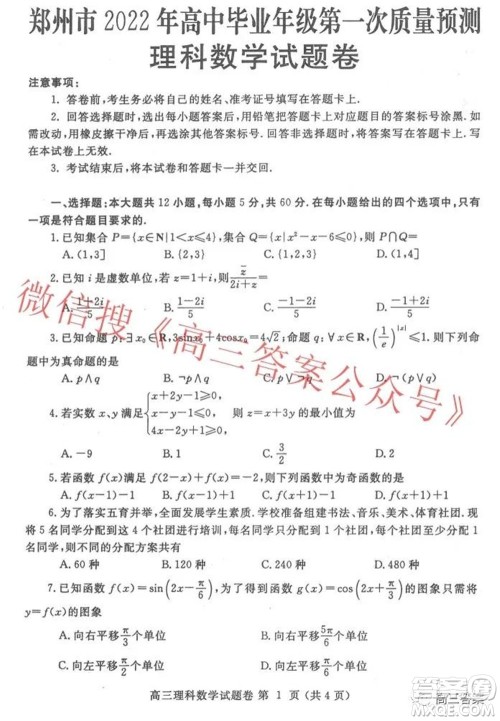 郑州市 2022 年高中毕业年级第一次质量预测
理科数学试题卷
注意事项：
1. 答卷前，考生务必将自己的姓名、准考证号填写在答题卡上.
2. 回答选择题时，选出每小题答案后，用铅笔把答题卡上对应题目的答案标号涂黑. 如
需改动，用橡皮擦干净后，再选涂其它答案标号. 回答非选择题时，将答案写在答题卡上. 写
在本试卷上无效.
3. 考试结束后，将本试卷和答题卡一并交回.
一、选择题：本大题共 12 小题，每小题 5 分，共 60 分. 在每小题给出的四个选项中，只有一
项是符合题目要求的.
1. 已知集合 P={x∈N|1<x≤4}，集合 Q={x|x²-x-6<0}，则 P∩Q=
A. (1,3] B. {2} C. {1,2} D. (1,4]
2. 已知 i 是虚数单位，若 z=1+i，则 z̄/(2i+z)=
A. (-1+2i)/5 B. (-1-2i)/5 C. (1-2i)/5 D. (1+2i)/5
3. 已知命题 p：∃x₀∈R,3sinx₀+4cosx₀=4√2；命题 q：∀x∈R,(1/e)^|x|≤1. 则下列命
题中为真命题的是
A. p∧q B. ¬p∧q C. p∨¬q D. ¬(p∨q)
4. 若实数 x,y 满足 {x+2y-1≥0, 2x+y-1≥0, x+y≥0, 则 z=x+3y 的最小值为
A. -9 B. 1 C. 3/2 D. 2
5. 若函数 f(x) 满足 f(2-x)+f(x)=-2，则下列函数中为奇函数的是
A. f(x-1)-1 B. f(x-1)+1 C. f(x+1)-1 D. f(x+1)+1
6. 为了落实五育并举，全面发展素质教育. 学校准备组建书法、音乐、美术、体育社团. 现
将 5 名同学分配到这 4 个社团进行培训，每名同学只分配到 1 个社团，每个社团至少分配 1
名同学，则不同的分配方案共有
A. 60 种 B. 120 种 C. 240 种 D. 480 种
7. 已知函数 f(x)=sin(2x-π/6)，为了得到函数 g(x)=cos(2x+π/6) 的图象只需将
y=f(x) 的图象
A. 向右平移 π/3 个单位 B. 向右平移 π/6 个单位
C. 向左平移 π/3 个单位 D. 向左平移 π/6 个单位
高三理科数学试题卷 第 1 页（共 4 页）
微信搜《高三答案公众号》
高三答案